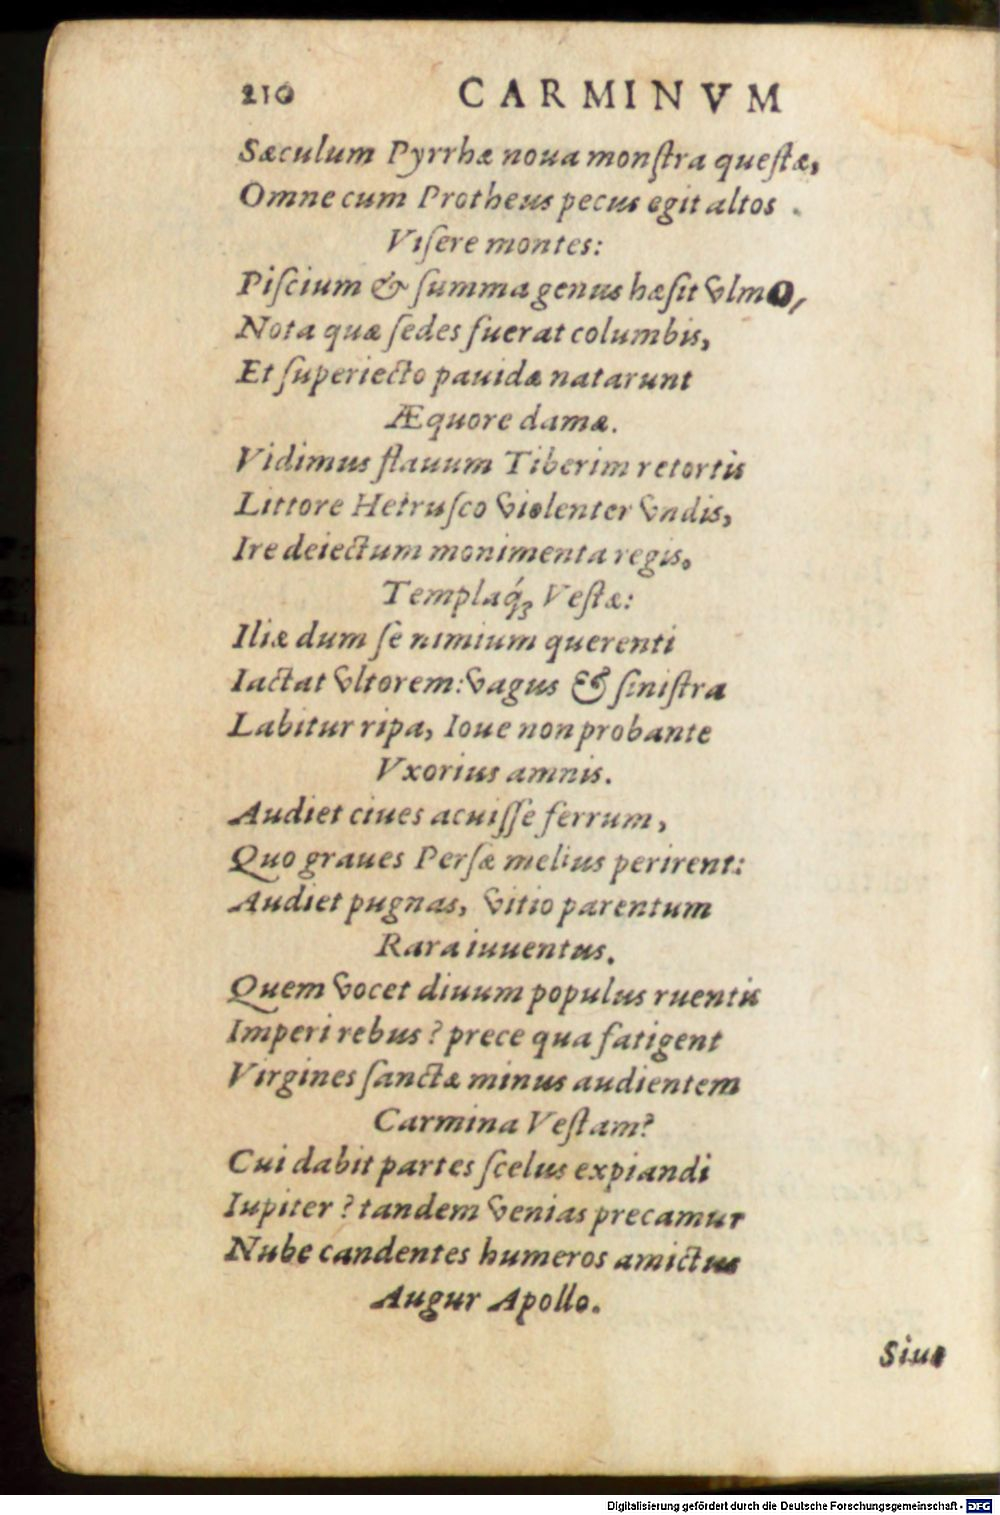 210 CARMINVM
Sæculum Pyrrhæ noua monſtra queſtæ,
Omne cum Protheus pecus egit altos .
Viſere montes:
Piſcium & ſumma genus hæſit vlmO,
Nota quæ ſedes fuerat columbis,
Et ſuperiecto pauidæ natarunt
Æquore damæ.
Vidimus flauum Tiberim retortis
Littore Hetruſco violenter vndis,
Ire deiectum monimenta regis.
Templaq́ꝫ Veſtæ:
Iliæ dum ſe nimium querenti
Iactat vltorem: vagus & ſiniſtra
Labitur ripa, Ioue non probante
Vxorius amnis.
Audiet ciues acuiſſe ferrum,
Quo graues Perſæ melius perirent:
Audiet pugnas, vitio parentum
Rara iuuentus.
Quem vocet diuum populus ruentis
Imperi rebus? prece qua fatigent
Virgines ſanctæ minus audientem
Carmina Veſtam?
Cui dabit partes ſcelus expiandi
Iupiter? tandem venias precamur
Nube candentes humeros amictus
Augur Apollo.
Siue
Digitalisierung gefördert durch die Deutsche Forschungsgemeinschaft - DFG